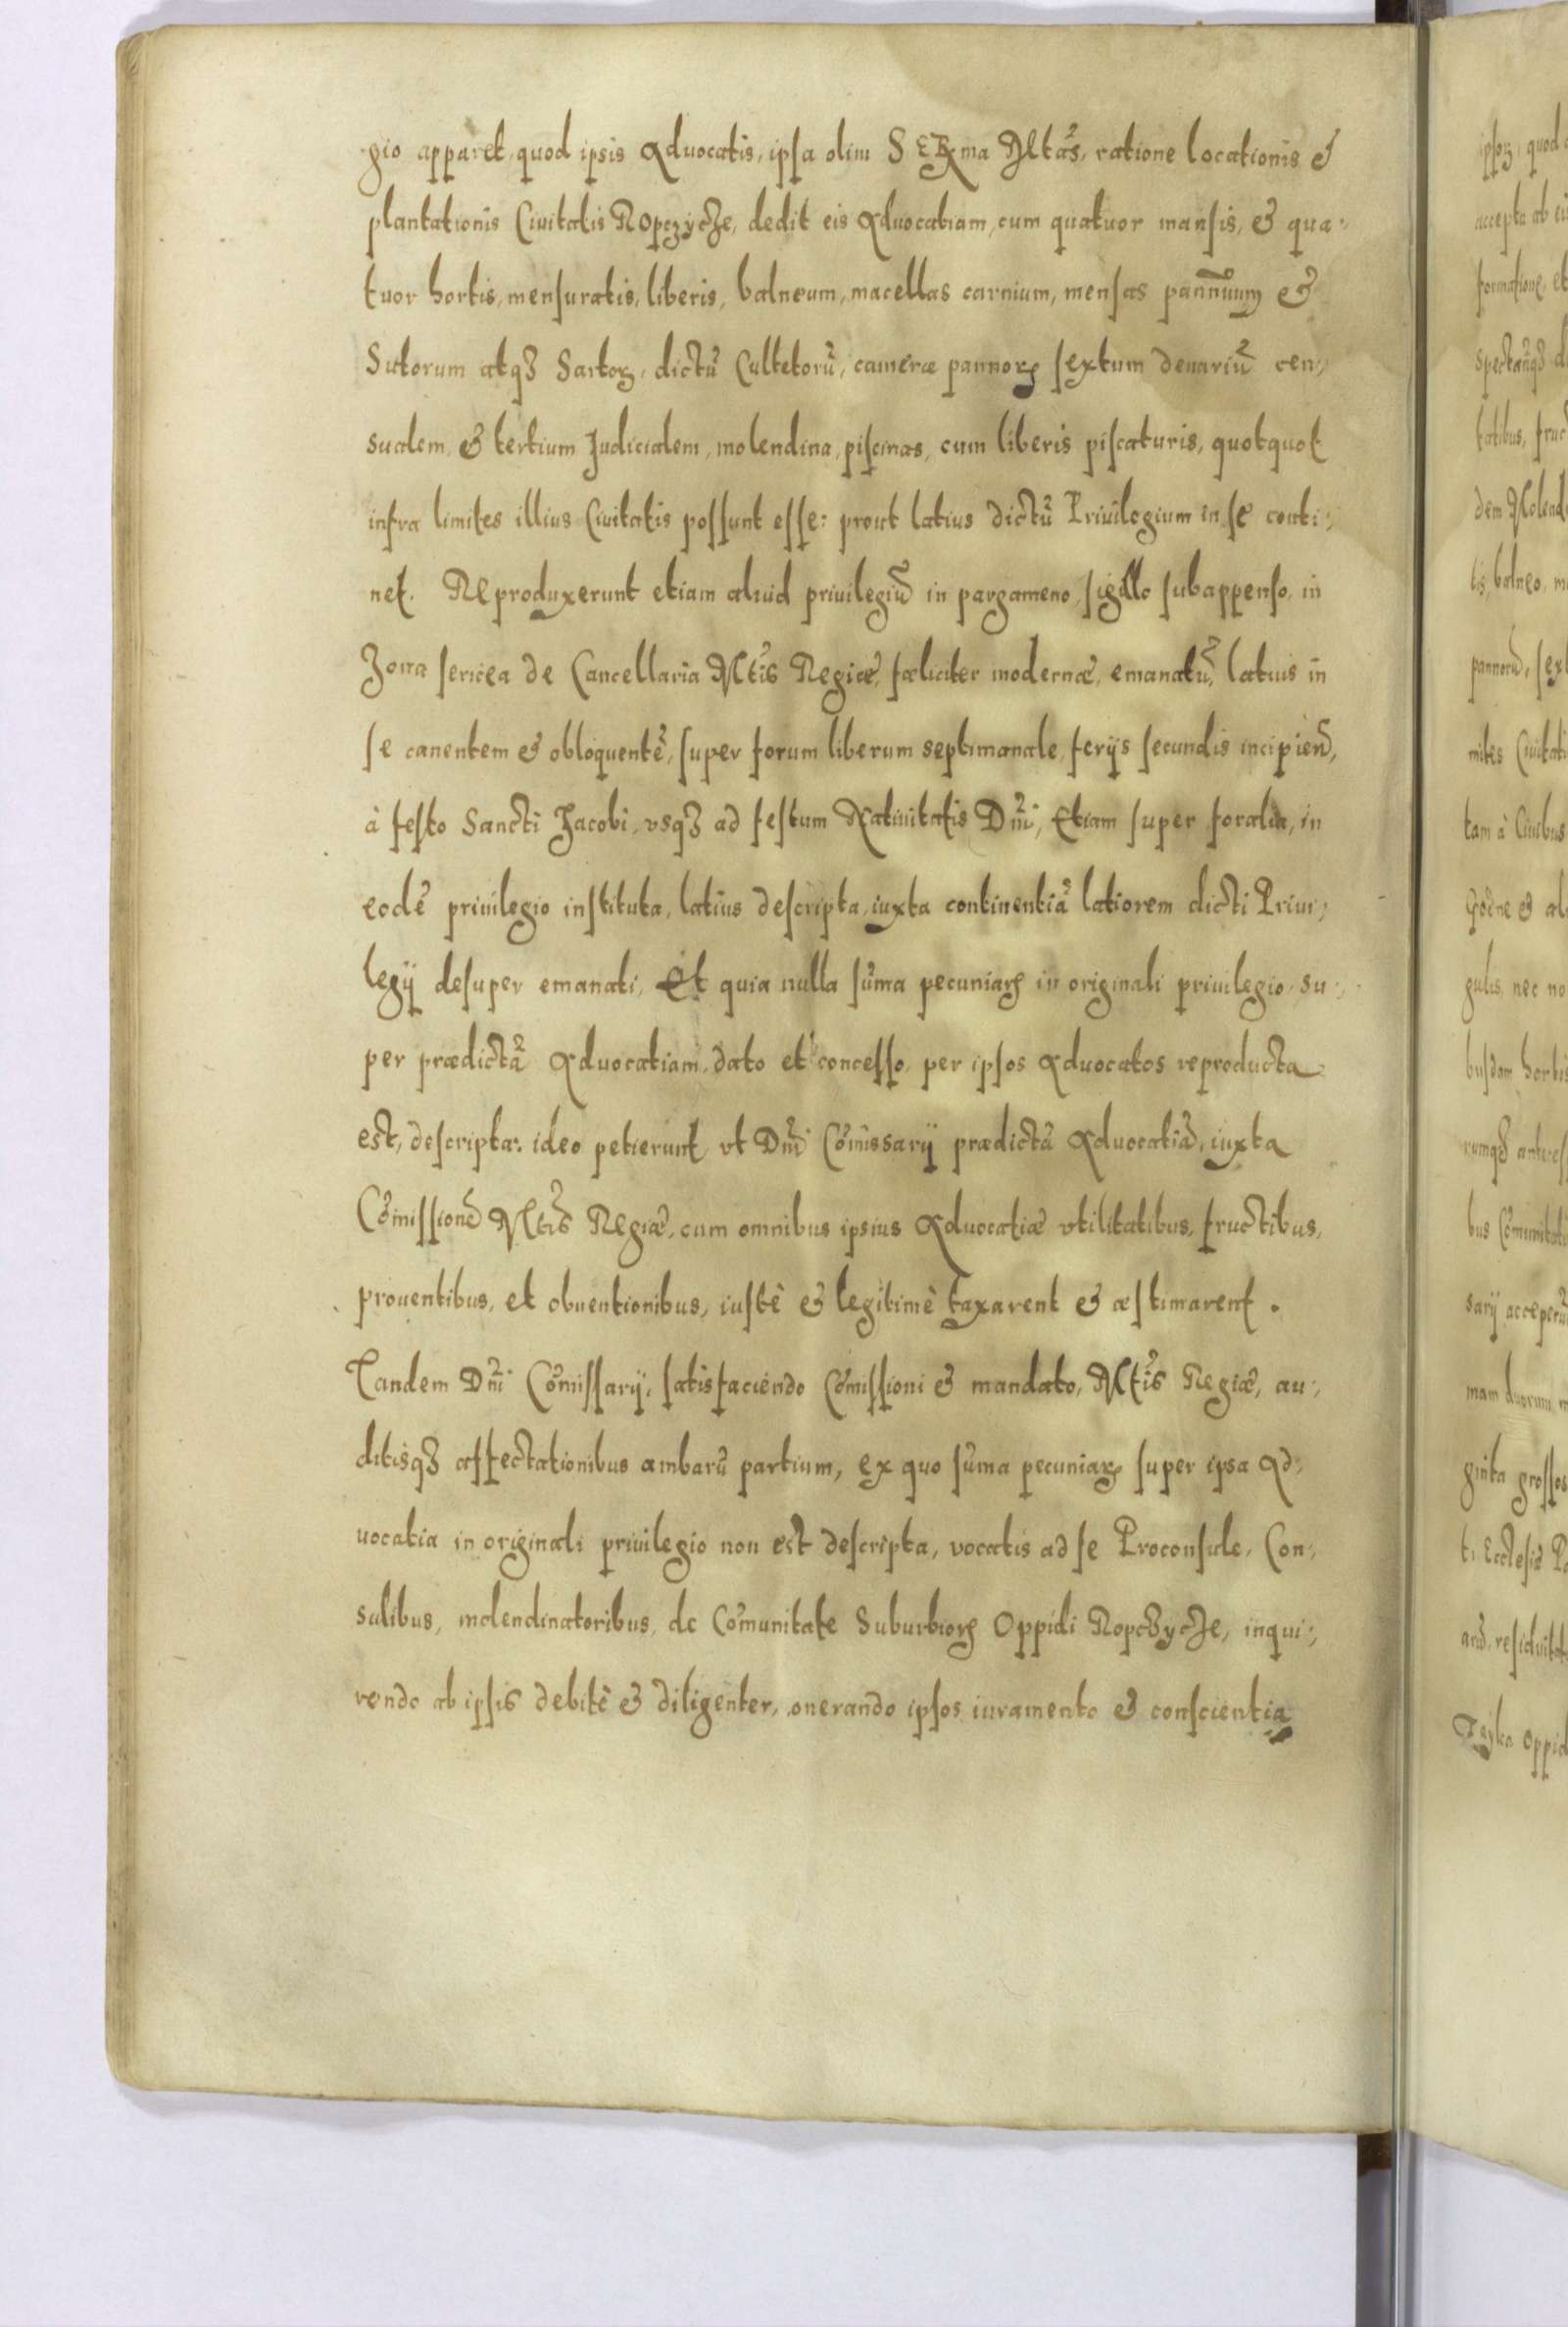 gio apparet, quod ipsis Aduocatis, ipsa olim SERma Mtãs, ratione locationis &
plantationis Ciuitatis Ropczycze, dedit eis Aduocatiam, cum quatuor mansis, & qua-
tuor hortis, mensuratis, liberis, balneum, macellas carnium, mensas &
Sutorum atqȝ Sartoꝝ, dictũ Cultetorũ, cameræ pannoꝝ sextum denariũ cen-
sualem, & tertium Judicialem, molendina, piscinas, cum liberis piscaturis, quotquot
infra limites illius Ciuitatis possunt esse: prout latius dictũ Priuilegium in se conti-
net. Reproduxerunt etiam aliud priuilegiũ in pargameno, sigillo subappenso, in
Zona sericea de Cancellaria Mtĩs Regiæ, fæliciter modernæ, emanatũ, latius in
se canentem & obloquentẽ, super forum liberum septimanale, ferijs secundis incipieñ,
à festo Sancti Jacobi, vsqȝ ad festum Natiuitatis Dñi, Etiam super foralia, in
eodẽ priuilegio instituta, latius descripta, iuxta continentiã latiorem dicti Priui-
legij desuper emanati, Et quia nulla sũma pecuniaꝝ in originali priuilegio, su-
per prædictã Aduocatiam, dato et concesso, per ipsos Aduocatos reproducta
est, descripta: ideo petierunt vt Dñi Cõmissarij prædictã Aduocatiã, iuxta
Cõmissionẽ Mtĩs Regiæ, cum omnibus ipsius Aduocatiæ vtilitatibus, fructibus,
prouentibus, et obuentionibus, iustè & legitimè taxarent & æstimarent.
Tandem Dñi Cõmissarij, satisfaciendo Cõmissioni & mandato, Mtĩs Regiæ, au-
ditisqȝ affectationibus ambarũ partium, ex quo sũma pecuniaꝝ super ipsa Ad-
uocatia in originali priuilegio non est descripta, vocatis ad se Proconsule, Con-
sulibus, molendinatoribus, de Cõmunitate Suburbioꝝ Oppidi Ropczycze, inqui-
rendo ab ipsis debitè & diligenter, onerando ipsos iuramento & conscientia